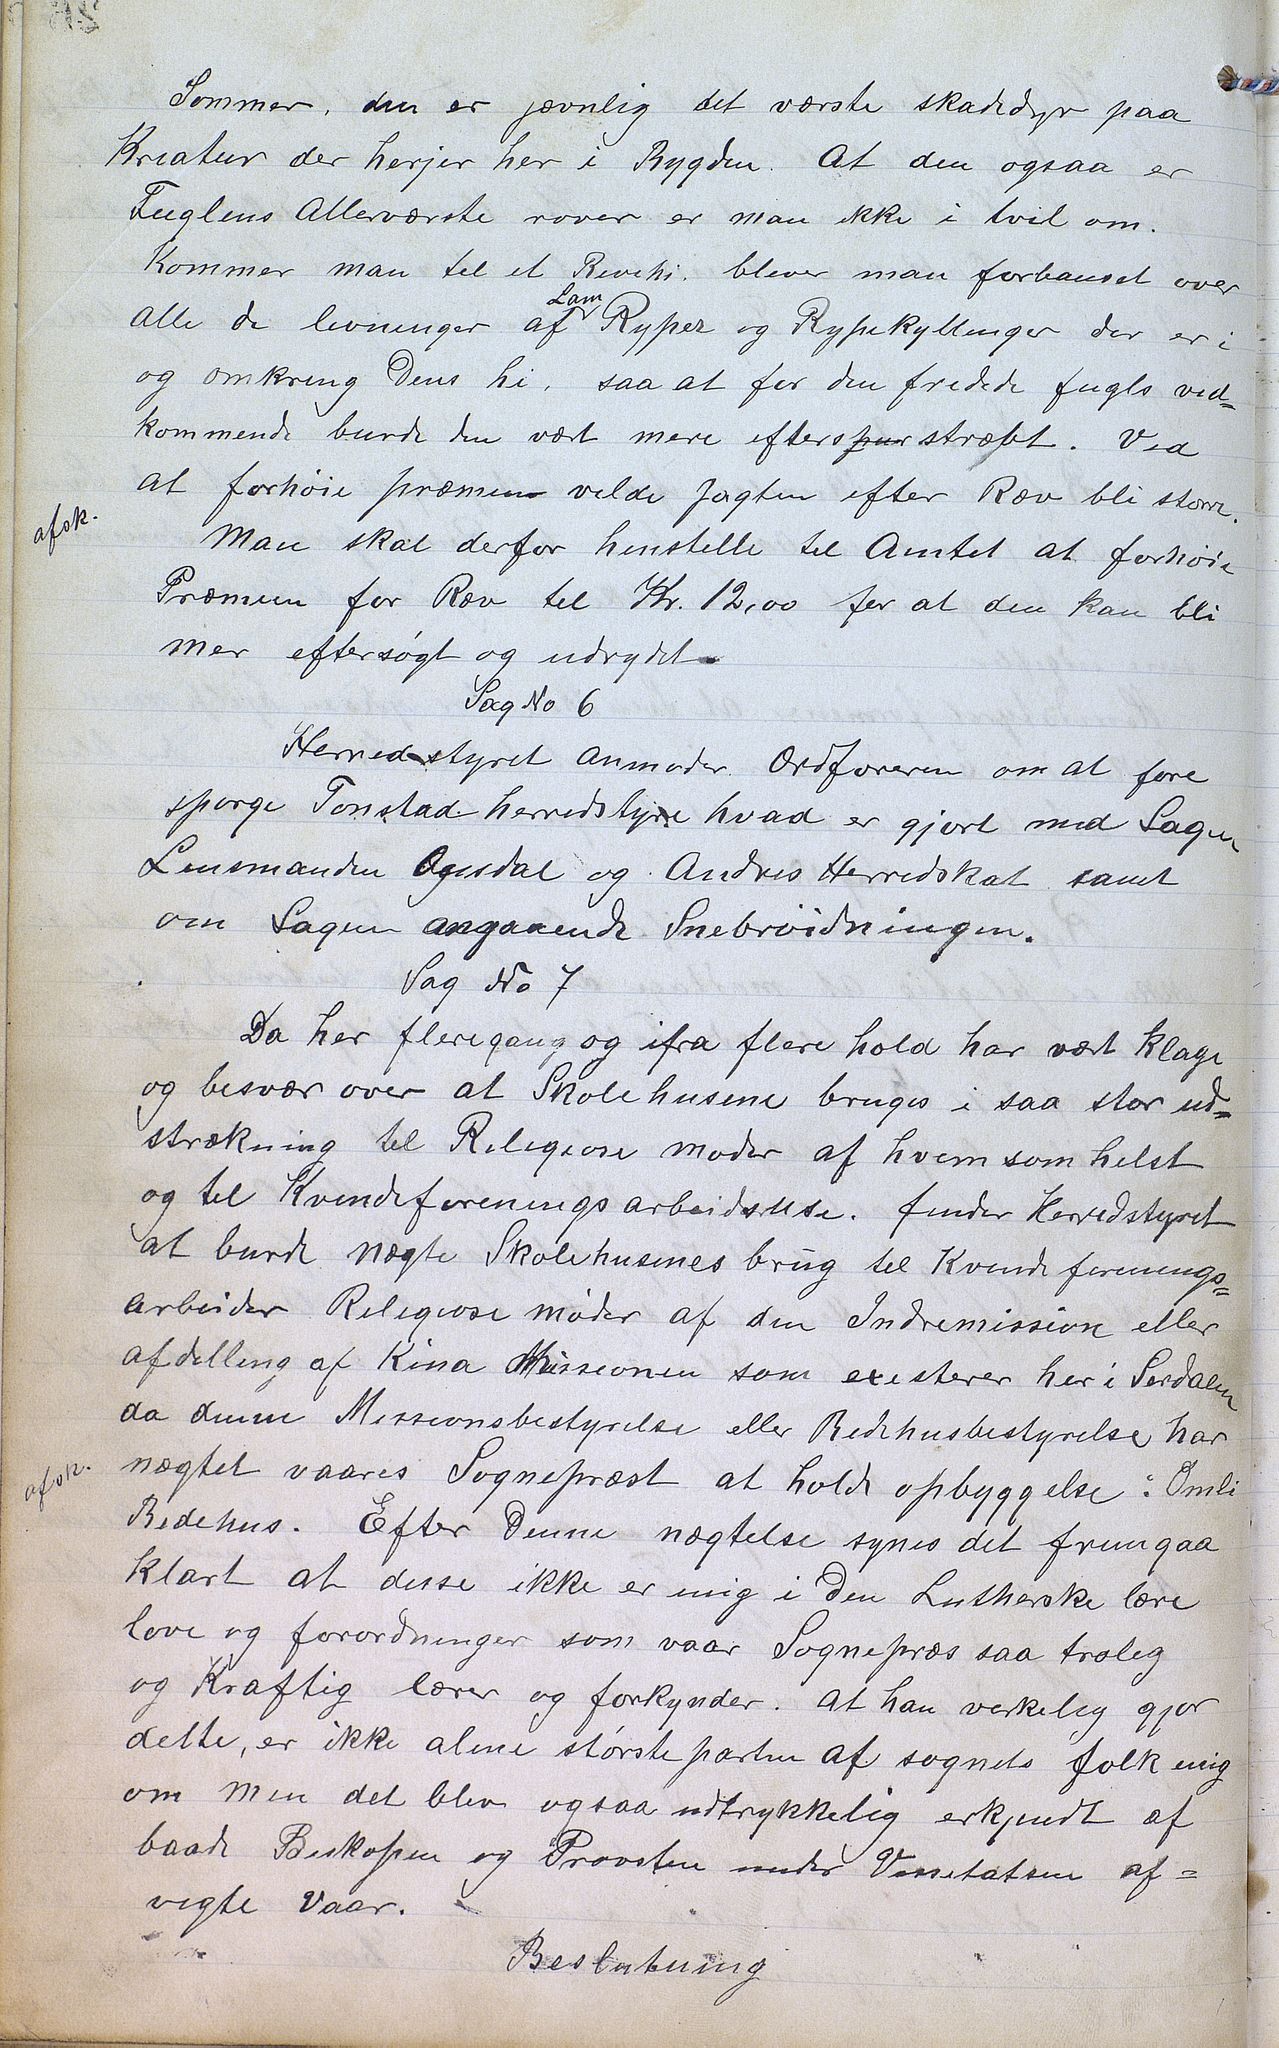 Sommer, den er jævnlig det værste skadedyr paa
Kreatur der herjer her i Bygden. At den ogsaa er
Fuglens Allerværste rover er man ikke i tvil om.
Kommer man til et Revehi. blever man forbauset over
alle de levninger af Lam Ryper og Rypekyllinger der er i
og omkring Dens hi. saa at for den fredede fugls ved-
kommende burde den vært mere efterspur stræbt. Ved
at forhøie præmien vilde Jagten efter Ræv bli større.
afsk.
Man skal derfor henstelle til Amtet at forhøie
Præmien for Ræv til Kr. 12,00 for at den kan bli
mer eftersøgt og udrydet
Sag No 6
Herredstyret anmoder Ordføreren om at fore
spørge Tonstad herredstyre hvad er gjort med Sagen
Lensmanden Ousdal og Andres Herredskat samt
om Sagen angaaende Snebrøidningen.
Sag No 7
Da her fleregang og ifra flere hold har vært klage
og besvær over at Skolehusene bruges i saa stor ud-
strækning til Religiøse møder af hvem som helst
og til Kvindeforeningsarbeidsuse. finder Herredstyret
at burde nægte Skolehusenes brug til Kvindeforenings-
arbeider Religiøse møder af den Indremission eller
afdelling af Kina Missionen som existerer her i Serdalen
da denne Missionsbestyrelse eller Bedehusbestyrelse har
afsk.
nægtet vaares Sognepræst at holde opbyggelse i Omli
Bedehus. Efter Denne nægtelse synes det fremgaa
klart at desse ikke er enig i Den Lutherske lære
love og forordninger som vaar Sognepræs saa trolig
og Kraftig lærer og forkynder. At han verkelig gjør
dette, er ikke alene størsteparten af sognets folk enig
om men det blev ogsaa udtrykkelig erkjendt af
baade Biskopen og Provsten under Vissetatsen af-
vigte Vaar.
Beslutning